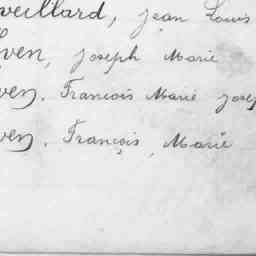 veillard, Jean Louis
ven, Joseph Marie
ven. François Marie Josep
ven. François, Marie